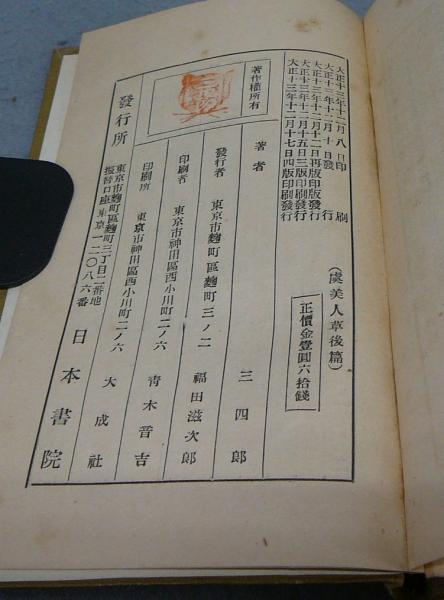 大正十三年十二月八日印刷
大正十三年十二月十日發行
大正十三年十二月十二日再版印刷發行
大正十三年十二月十五日三版印刷發行
大正十三年十二月十七日四版印刷發行
(虞美人草後篇)
正價金壹圓六拾錢
著作權所有
著者 三四郎
發行者 東京市麴町區麴町三ノ二 福田滋次郎
印刷者 東京市神田區西小川町二ノ六 青木晉吉
印刷所 東京市神田區西小川町二ノ六 大成社
發行所 東京市麴町區麴町三丁目二番地
振替口座東京一二〇八六番
日本書院